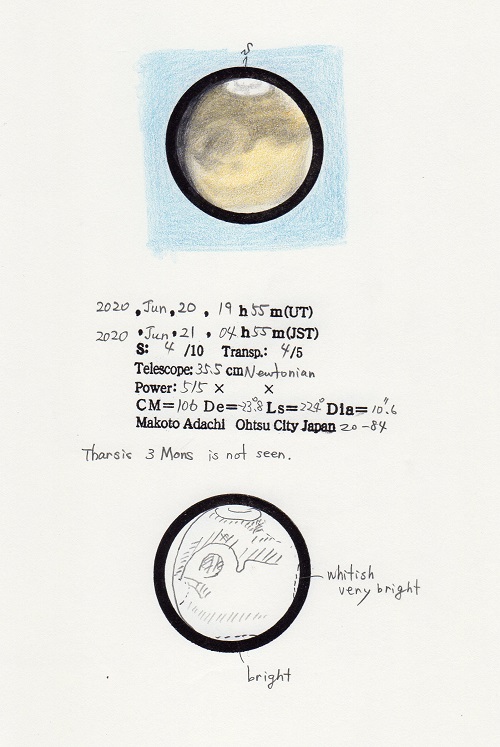 S
2020 , Jun , 20 , 19 h 55 m (UT)
2020 , Jun , 21 , 04 h 55 m (JST)
S: 4 /10 Transp.: 4/5
Telescope: 35.5 cm Newtonian
Power: 515 × ×
CM=106 De=-23°.8 Ls=224° Dia=10".6
Makoto Adachi Ohtsu City Japan 20-84
Tharsis 3 Mons is not seen.
whitish
very bright
bright